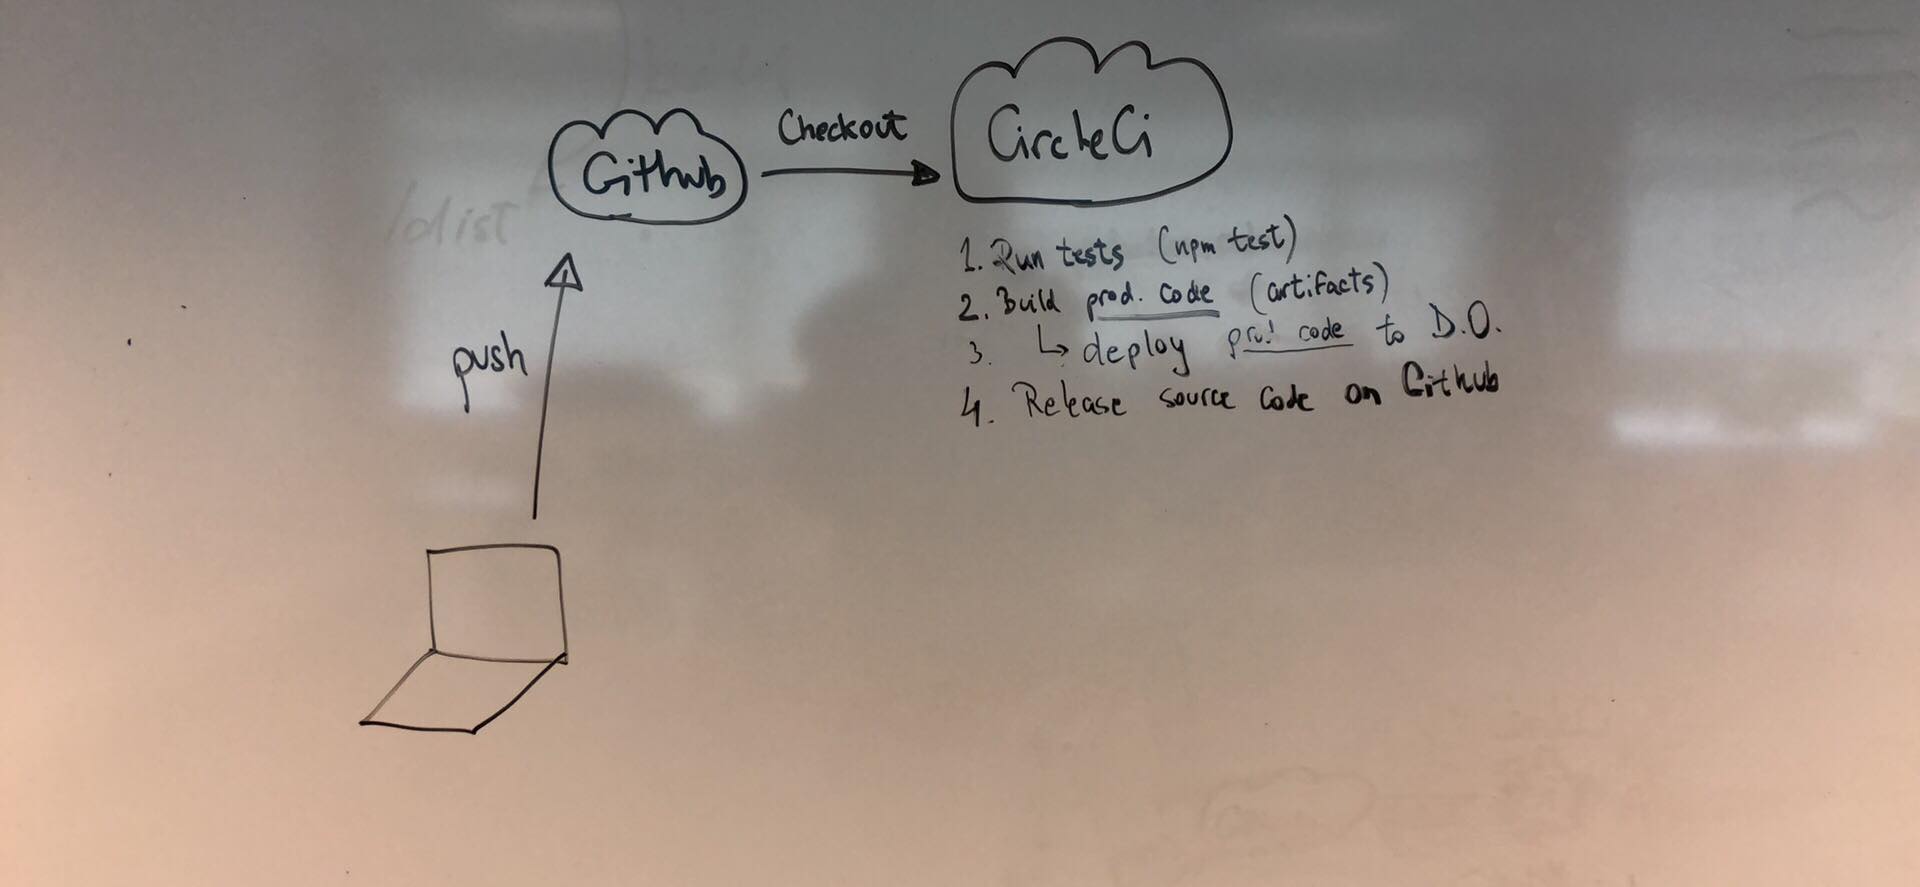 Github
Checkout
CircleCi
push
1. Run tests (npm test)
2. Build prod. code (artifacts)
3. ↳ deploy code to D.O.
4. Release source code on Github